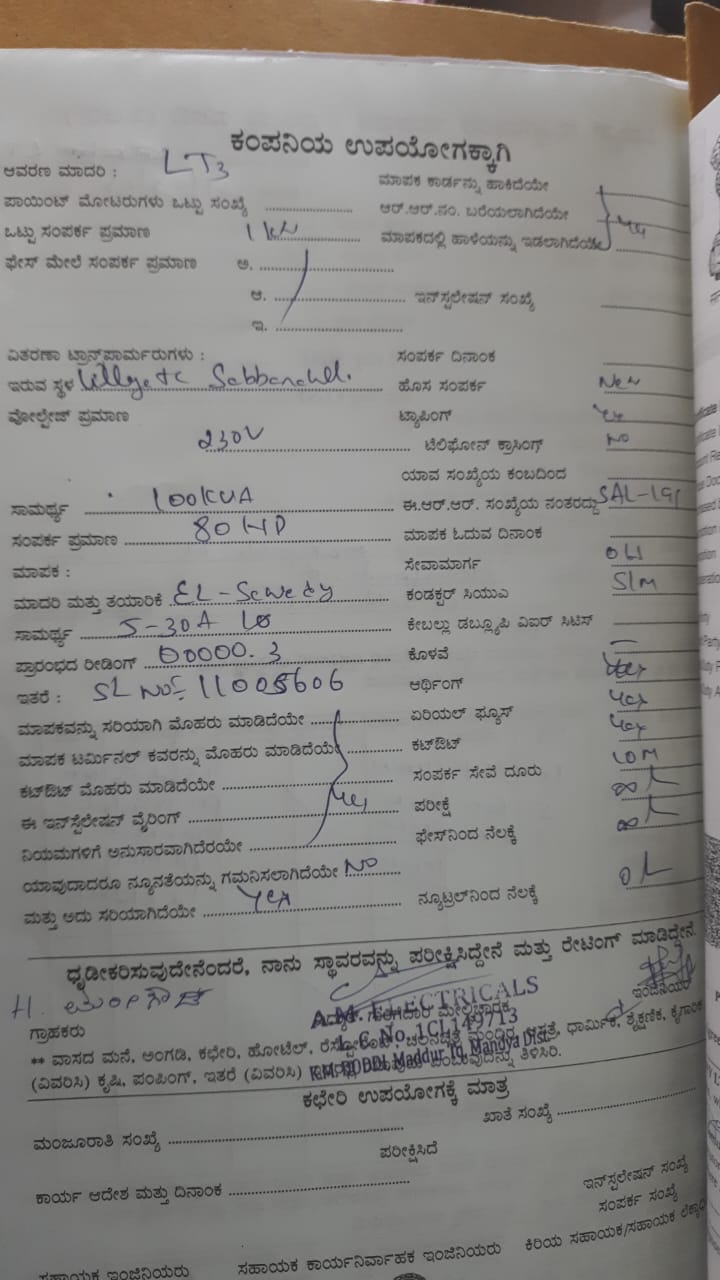 ಕಂಪನಿಯ ಉಪಯೋಗಕ್ಕಾಗಿ
ಆವರಣ ಮಾದರಿ : LT3
ಮಾಪಕ ಕಾರ್ಡನ್ನು ಹಾಕಿದೆಯೇ
ಪಾಯಿಂಟ್ ಮೋಟರುಗಳು ಒಟ್ಟು ಸಂಖ್ಯೆ
ಆರ್.ಆರ್.ನಂ. ಬರೆಯಲಾಗಿದೆಯೇ
ಒಟ್ಟು ಸಂಪರ್ಕ ಪ್ರಮಾಣ 1 kw
ಮಾಪಕದಲ್ಲಿ ಹಾಳೆಯನ್ನು ಇಡಲಾಗಿದೆಯೇ
ಫೇಸ್ ಮೇಲೆ ಸಂಪರ್ಕ ಪ್ರಮಾಣ ಅ.
ಆ. ಇನ್‌ಸ್ಟಲೇಷನ್ ಸಂಖ್ಯೆ
ಇ.
ವಿತರಣಾ ಟ್ರಾನ್ಸ್‌ಫಾರ್ಮರುಗಳು :
ಸಂಪರ್ಕ ದಿನಾಂಕ
ಇರುವ ಸ್ಥಳ
ಹೊಸ ಸಂಪರ್ಕ New
ವೋಲ್ಟೇಜ್ ಪ್ರಮಾಣ 230V
ಟ್ಯಾಪಿಂಗ್ Yes
ಟೆಲಿಫೋನ್ ಕ್ರಾಸಿಂಗ್ NO
ಯಾವ ಸಂಖ್ಯೆಯ ಕಂಬದಿಂದ
ಸಾಮರ್ಥ್ಯ 100KVA
ಈ.ಆರ್.ಆರ್. ಸಂಖ್ಯೆಯ ನಂತರದ್ದು SAL-191
ಸಂಪರ್ಕ ಪ್ರಮಾಣ 80 HP
ಮಾಪಕ ಓದುವ ದಿನಾಂಕ
ಮಾಪಕ :
ಸೇವಾಮಾರ್ಗ OH
ಮಾದರಿ ಮತ್ತು ತಯಾರಿಕೆ EL-Sewedy
ಕಂಡಕ್ಟರ್ ಸಿಯುವಿ
ಸಾಮರ್ಥ್ಯ 5-30A 1Ø
ಕೇಬಲ್ಲು ಡಬ್ಲ್ಯೂಪಿ ವಿಐರ್ ಸಿಟಿಸ್
ಪ್ರಾರಂಭದ ರೀಡಿಂಗ್ 00000.3
ಕೊಳವೆ —
ಇತರೆ : SL NO:- 11005606
ಆರ್ಥಿಂಗ್ Yes
ಮಾಪಕವನ್ನು ಸರಿಯಾಗಿ ಮೊಹರು ಮಾಡಿದೆಯೇ
ಏರಿಯಲ್ ಫ್ಯೂಸ್ Yes
ಮಾಪಕ ಟರ್ಮಿನಲ್ ಕವರನ್ನು ಮೊಹರು ಮಾಡಿದೆಯೇ
ಕಟ್‌ಔಟ್ Yes
ಕಟ್‌ಔಟ್ ಮೊಹರು ಮಾಡಿದೆಯೇ
ಸಂಪರ್ಕ ಸೇವೆ ದೂರು 10M
ಈ ಇನ್‌ಸ್ಟೆಲೇಶನ್ ವೈರಿಂಗ್
ಪರೀಕ್ಷೆ
ನಿಯಮಗಳಿಗೆ ಅನುಸಾರವಾಗಿದೆರಯೇ
ಫೇಸ್‌ನಿಂದ ನೆಲಕ್ಕೆ
ಯಾವುದಾದರೂ ನ್ಯೂನತೆಯನ್ನು ಗಮನಿಸಲಾಗಿದೆಯೇ NO
ಮತ್ತು ಅದು ಸರಿಯಾಗಿದೆಯೇ Yes
ನ್ಯೂಟ್ರಲ್‌ನಿಂದ ನೆಲಕ್ಕೆ
ಧೃಡೀಕರಿಸುವುದೇನೆಂದರೆ, ನಾನು ಸ್ಥಾವರವನ್ನು ಪರೀಕ್ಷಿಸಿದ್ದೇನೆ ಮತ್ತು ರೇಟಿಂಗ್ ಮಾಡಿದ್ದೇನೆ.
ಗ್ರಾಹಕರು
A.M. ELECTRICALS
ಇಂಜಿನಿಯರ
L.C No. 1CL149713
K.M DODDI Maddur Tq, Mandya Dist.
** ವಾಸದ ಮನೆ, ಅಂಗಡಿ, ಕಛೇರಿ, ಹೋಟೆಲ್, ಧಾರ್ಮಿಕ, ಶೈಕ್ಷಣಿಕ, ಕೈಗಾರಿಕೆ
(ವಿವರಿಸಿ) ಕೃಷಿ, ಪಂಪಿಂಗ್, ಇತರೆ (ವಿವರಿಸಿ) ತಿಳಿಸಿರಿ.
ಕಛೇರಿ ಉಪಯೋಗಕ್ಕೆ ಮಾತ್ರ
ಮಂಜೂರಾತಿ ಸಂಖ್ಯೆ
ಖಾತೆ ಸಂಖ್ಯೆ
ಪರೀಕ್ಷಿಸಿದೆ
ಕಾರ್ಯ ಆದೇಶ ಮತ್ತು ದಿನಾಂಕ
ಇನ್‌ಸ್ಟಲೇಷನ್ ಸಂಖ್ಯೆ
ಸಂಪರ್ಕ ಸಂಖ್ಯೆ
ಸಹಾಯಕ ಇಂಜಿನಿಯರು ಸಹಾಯಕ ಕಾರ್ಯನಿರ್ವಾಹಕ ಇಂಜಿನಿಯರು ಕಿರಿಯ ಸಹಾಯಕ/ಸಹಾಯಕ